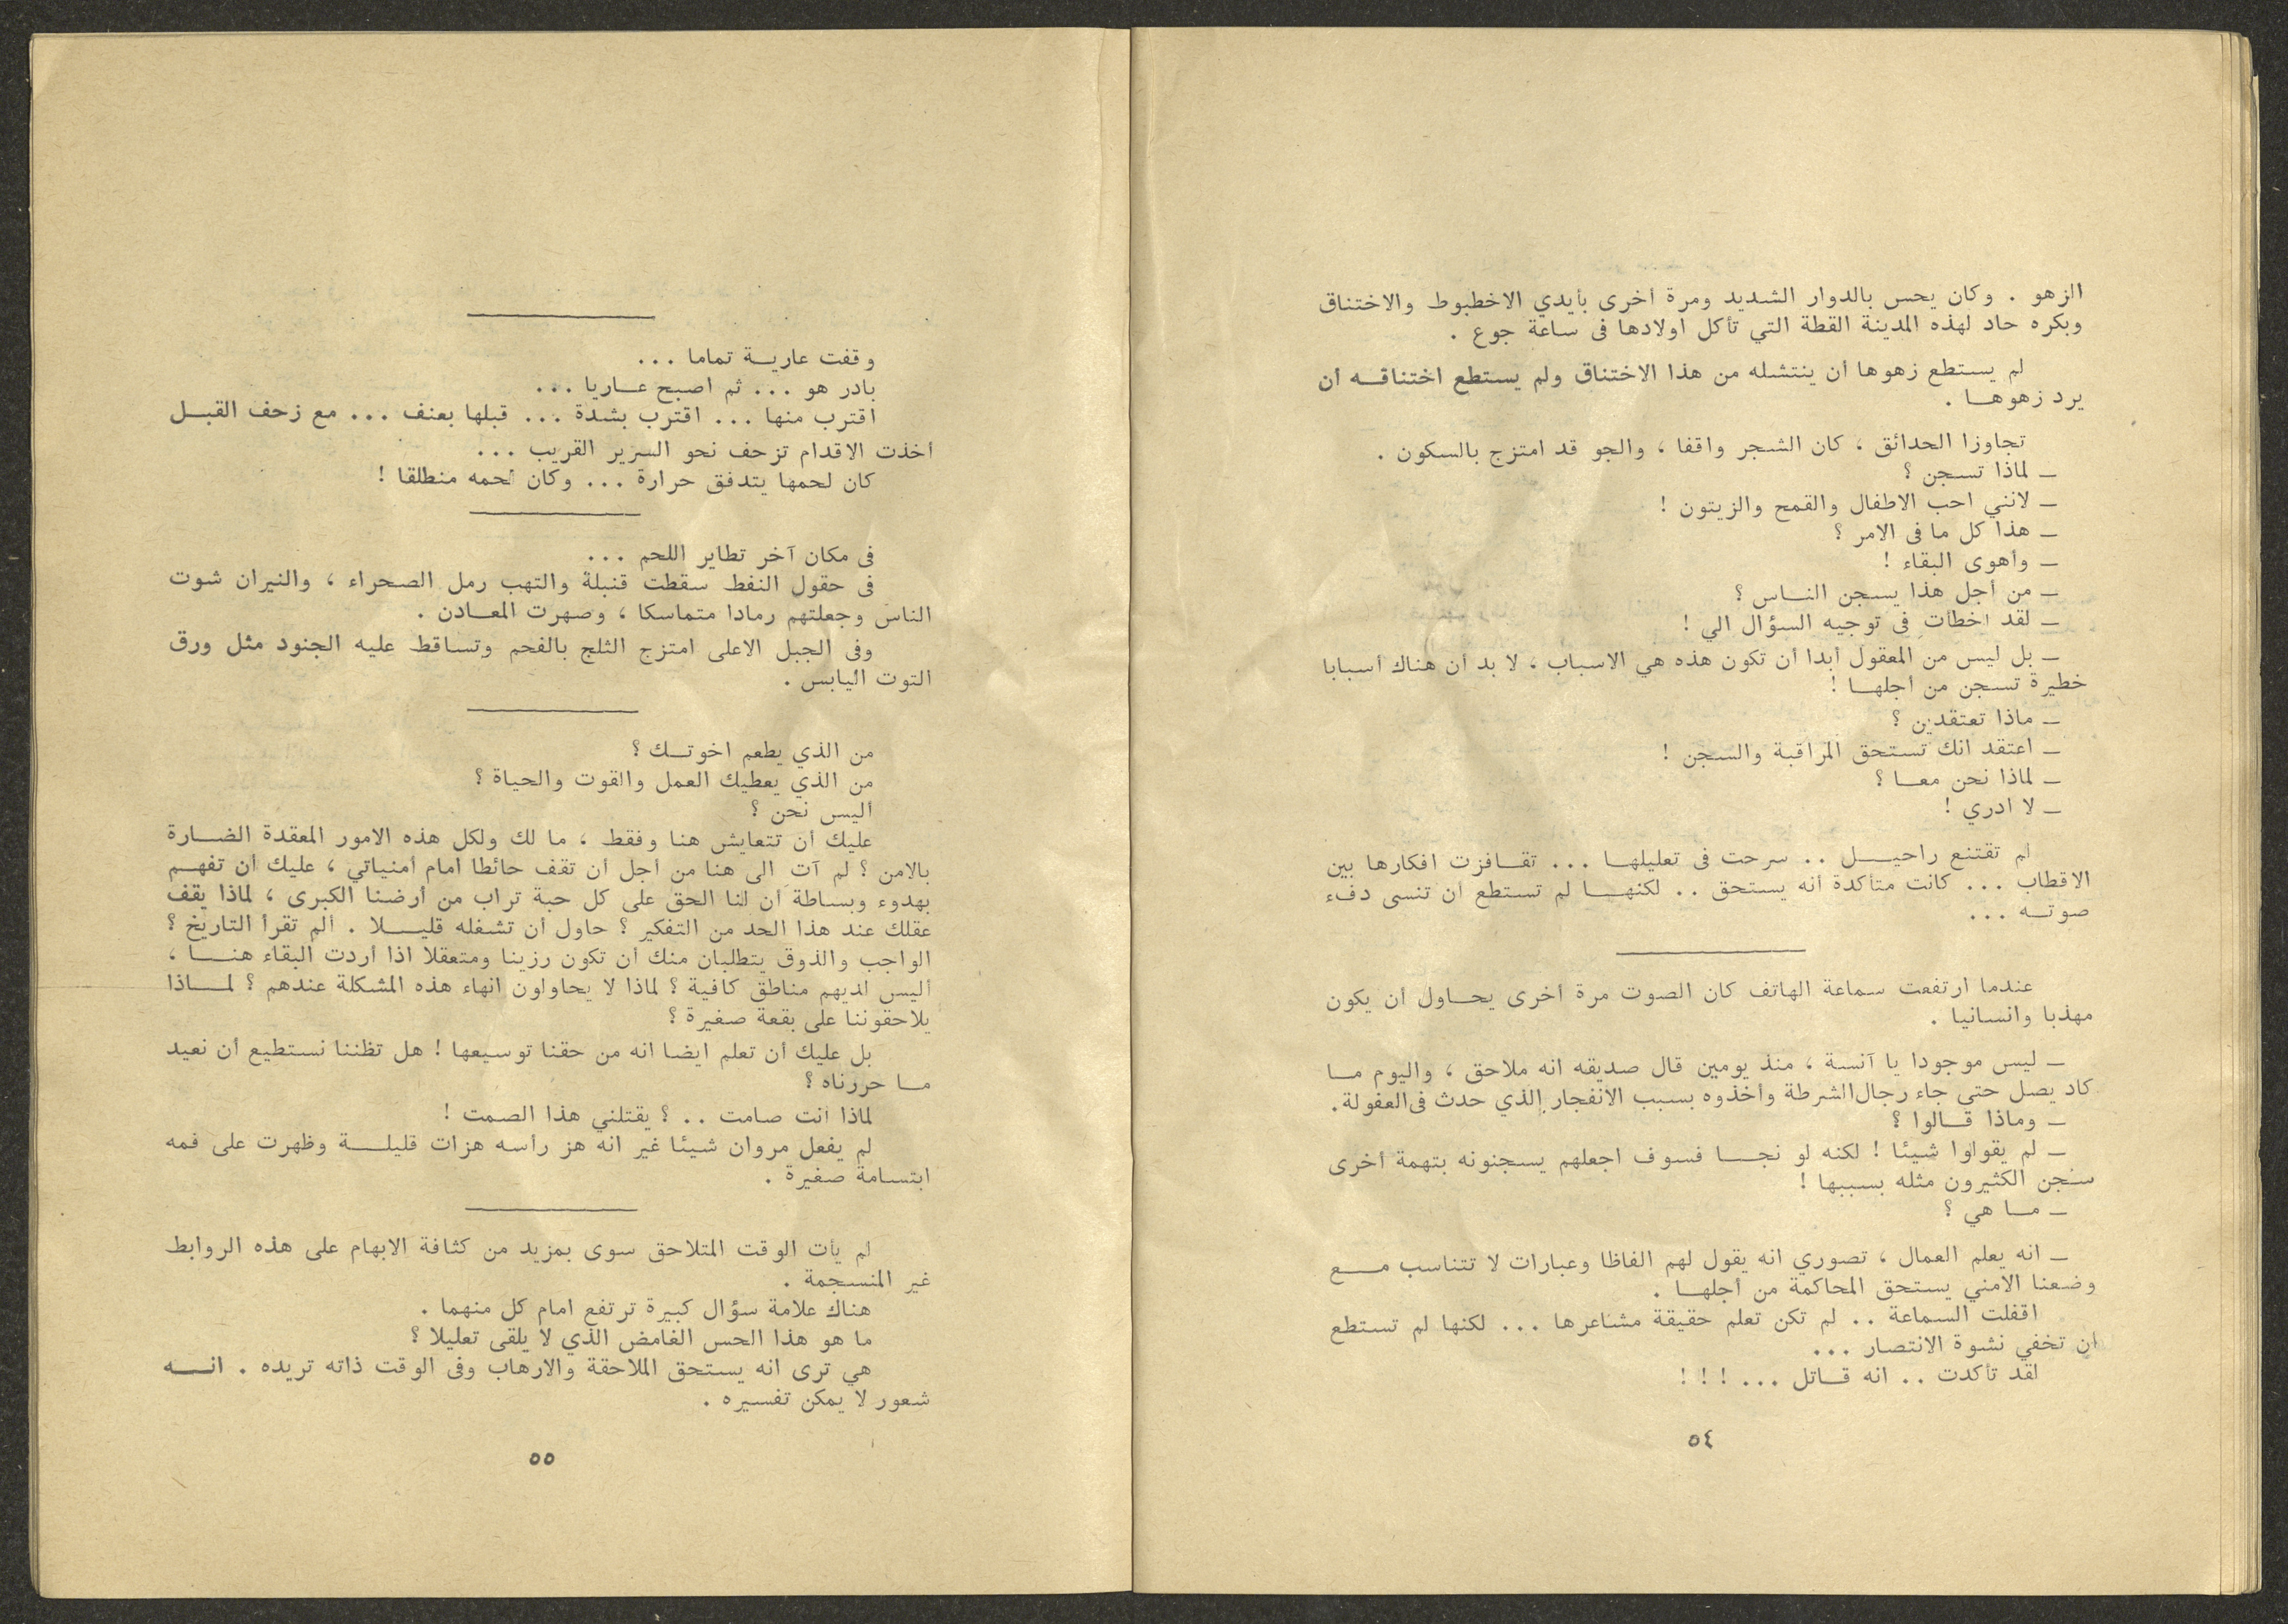 الزهو . وكان يحس بالدوار الشديد ومرة أخرى بأيدي الاخطبوط والاختناق
وبكره حاد لهذه المدينة القطة التي تأكل اولادها فى ساعة جوع .
لم يستطع زهوها أن ينتشله من هذا الاختناق ولم يستطع اختناقه أن
يرد زهوها .
تجاوزا الحدائق ، كان الشجر واقفا ، والجو قد امتزج بالسكون .
ـ لماذا تسجن ؟
ـ لانني احب الاطفال والقمح والزيتون !
ـ هذا كل ما فى الامر ؟
ـ وأهوى البقاء !
ـ من أجل هذا يسجن الناس ؟
ـ لقد اخطأت فى توجيه السؤال الي !
ـ بل ليس من المعقول أبدا أن تكون هذه هي الاسباب ، لا بد أن هناك أسبابا
خطيرة تسجن من أجلها !
ـ ماذا تعتقدين ؟
ـ اعتقد انك تستحق المراقبة والسجن !
ـ لماذا نحن معا ؟
ـ لا ادري !
لم تقتنع راحيل .. سرحت فى تعليلها ... تقافزت افكارها بين
الاقطاب ... كانت متأكدة أنه يستحق .. لكنها لم تستطع أن تنسى دفء
صوته ...
عندما ارتفعت سماعة الهاتف كان الصوت مرة أخرى يحاول أن يكون
مهذبا وانسانيا .
ـ ليس موجودا يا آنسة ، منذ يومين قال صديقه انه ملاحق ، واليوم ما
كاد يصل حتى جاء رجال الشرطة وأخذوه بسبب الانفجار الذي حدث فى العفولة .
ـ وماذا قالوا ؟
ـ لم يقولوا شيئا ! لكنه لو نجا فسوف اجعلهم يسجنونه بتهمة أخرى
سنجن الكثيرون مثله بسببها !
ـ ما هي ؟
ـ انه يعلم العمال ، تصوري انه يقول لهم الفاظا وعبارات لا تتناسب مع
وضعنا الامني يستحق المحاكمة من أجلها .
اقفلت السماعة .. لم تكن تعلم حقيقة مشاعرها ... لكنها لم تستطع
ان تخفي نشوة الانتصار ...
لقد تأكدت .. انه قاتل ... ! ! !
٥٤
وقفت عارية تماما ...
بادر هو ... ثم اصبح عاريا ...
اقترب منها ... اقترب بشدة ... قبلها بعنف ... مع زحف القبل
أخذت الاقدام تزحف نحو السرير القريب ...
كان لحمها يتدفق حرارة ... وكان لحمه منطلقا !
فى مكان آخر تطاير اللحم ...
فى حقول النفط سقطت قنبلة والتهب رمل الصحراء ، والنيران شوت
الناس وجعلتهم رمادا متماسكا ، وصهرت المعادن .
وفى الجبل الاعلى امتزج الثلج بالفحم وتساقط عليه الجنود مثل ورق
التوت اليابس .
من الذي يطعم اخوتك ؟
من الذي يعطيك العمل والقوت والحياة ؟
أليس نحن ؟
عليك أن تتعايش هنا وفقط ، ما لك ولكل هذه الامور المعقدة الضارة
بالامن ؟ لم آت الى هنا من أجل أن تقف حائطا أمام أمنياتي ، عليك أن تفهم
بهدوء وبساطة أن لنا الحق على كل حبة تراب من أرضنا الكبرى ، لماذا يقف
عقلك عند هذا الحد من التفكير ؟ حاول أن تشغله قليلا . ألم تقرأ التاريخ ؟
الواجب والذوق يتطلبان منك أن تكون رزينا ومتعقلا اذا أردت البقاء هنا ،
أليس لديهم مناطق كافية ؟ لماذا لا يحاولون انهاء هذه المشكلة عندهم ؟ لماذا
يلاحقوننا على بقعة صغيرة ؟
بل عليك أن تعلم ايضا انه من حقنا توسيعها ! هل تظننا نستطيع أن نعيد
ما حررناه ؟
لماذا أنت صامت .. ؟ يقتلني هذا الصمت !
لم يفعل مروان شيئا غير انه هز رأسه هزات قليلة وظهرت على فمه
ابتسامة صغيرة .
لم يأت الوقت المتلاحق سوى بمزيد من كثافة الابهام على هذه الروابط
غير المنسجمة .
هناك علامة سؤال كبيرة ترتفع امام كل منهما .
ما هو هذا الحس الغامض الذي لا يلقى تعليلا ؟
هي ترى انه يستحق الملاحقة والارهاب وفى الوقت ذاته تريده . انه
شعور لا يمكن تفسيره .
٥٥